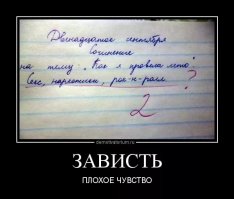 Двенадцатое сентября
Сочинение
на тему: „Как я провела лето“
Секс, наркотики, рок-н-ролл
?
2
demotivatorium.ru
ЗАВИСТЬ
ПЛОХОЕ ЧУВСТВО